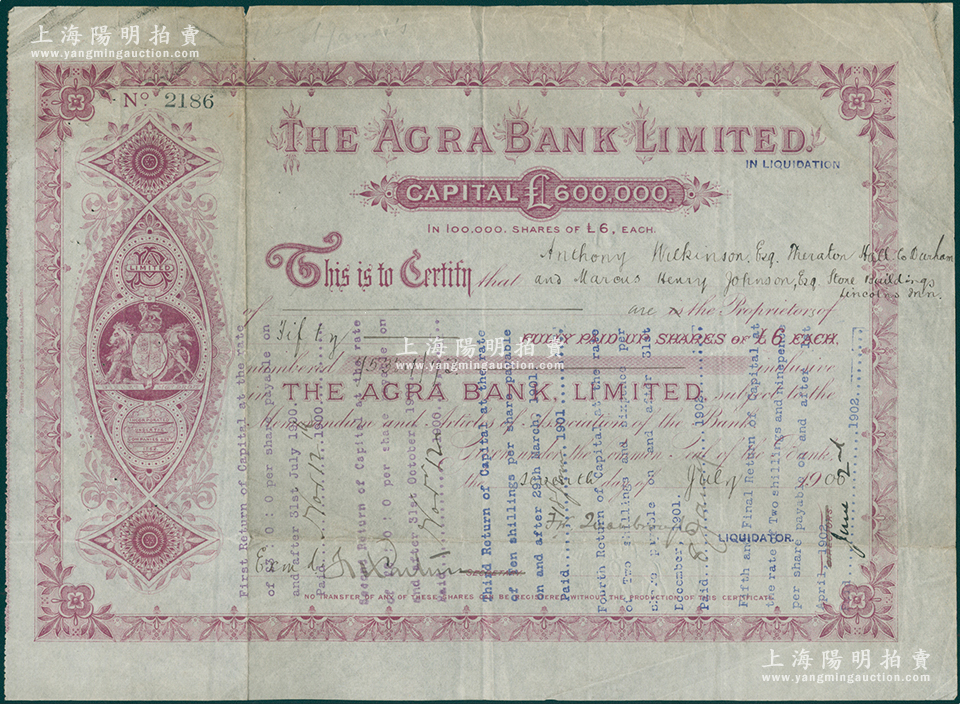 上海陽明拍賣
www.yangmingauction.com
No 2186
THE AGRA BANK LIMITED.
IN LIQUIDATION
CAPITAL £600,000.
IN 100,000. SHARES OF £6, EACH.
This is to Certify that
Anthony Wilkinson, Esq. Hall Co Durham
and Marcus Henry Johnson, Esq. Stone Buildings
Lincoln's Inn.
of are the Proprietors of
Fifty FULLY PAID UP SHARES OF £6 EACH.
numbered inclusive
in THE AGRA BANK, LIMITED, subject to the
Memorandum and Articles of Association of the Bank.
Given under the Common Seal of the Bank,
the day of July 190
LIQUIDATOR.
NO TRANSFER OF ANY OF THESE SHARES CAN BE REGISTERED WITHOUT THE PRODUCTION OF THIS CERTIFICATE.
LIMITED
First Return of Capital at the rate
of £ : 0 : 0 per share payable on
and after 31st July 1900.
Paid 1900
Second Return of Capital at the rate
of : 0 per share payable on
and after 31st October 1900.
Paid 1900.
Third Return of Capital at the rate
of Ten shillings per share payable
on and after 29th March, 1901
Paid 1901.
Fourth Return of Capital at the rate
of Two shillings and sixpence per
share payable on and after 31st
December, 1901.
Paid 190
Fifth and Final Return of Capital at
the rate of Two shillings and ninepence
per share payable on and after 1st
April 1902
June 2nd 1902
上海陽明拍賣
www.yangmingauction.com
上海陽明拍賣
www.yangmingauction.com